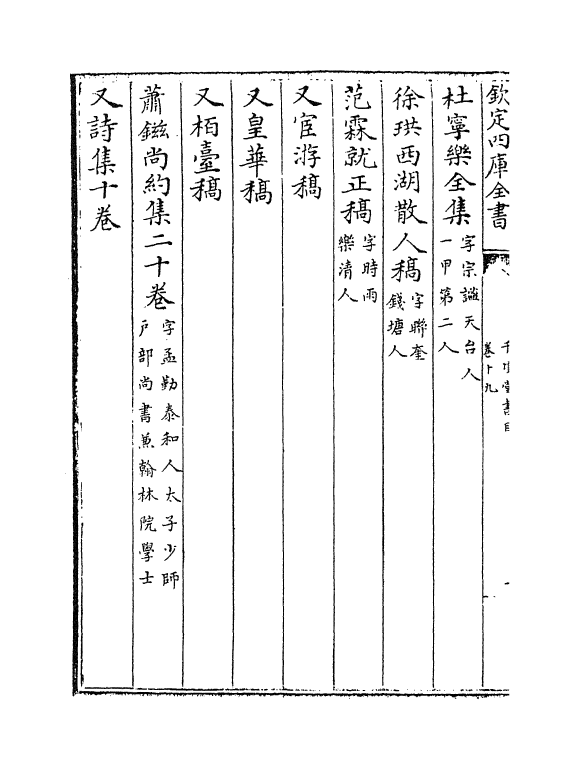 欽定四庫全書
千頃堂書目
卷十九
杜寧樂全集字宗謐天台人
一甲第二人
徐珙西湖散人稿字聯奎
錢塘人
范霖就正稿字時雨
樂清人
又宦游稿
又皇華稿
又栢臺稿
蕭鎡尚約集二十卷字孟勤泰和人太子少師
戶部尚書兼翰林院學士
又詩集十卷